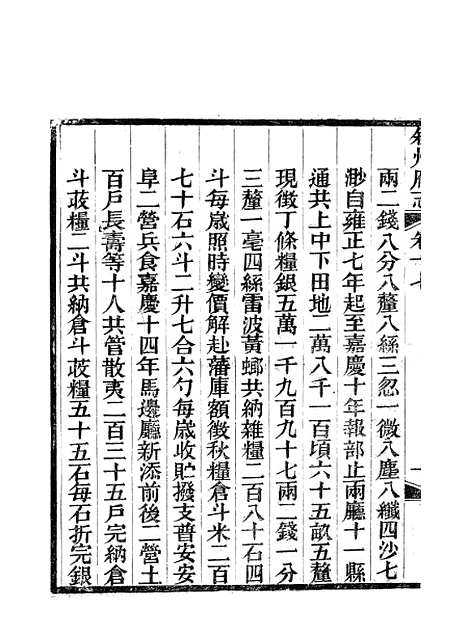 敘州府志 卷十七
兩二錢八分八釐八絲三忽一微八塵八纖四沙七
渺自雍正七年起至嘉慶十年報部止兩廳十一縣
通共上中下田地二萬八千一百頃六十五畝五釐
現徵丁條糧銀五萬一千九百九十七兩二錢一分
三釐一毫四絲雷波黃螂共納雜糧二百八十石四
斗每歲照時變價解赴藩庫額徵秋糧倉斗米二百
七十石六斗二升七合六勺每歲收貯撥支普安安
阜二營兵食嘉慶十四年馬邊廳新添前後二營土
百戶長壽等十人共管散夷二百三十五戶完納倉
斗荍糧二斗共納倉斗荍糧五十五石每石折完銀